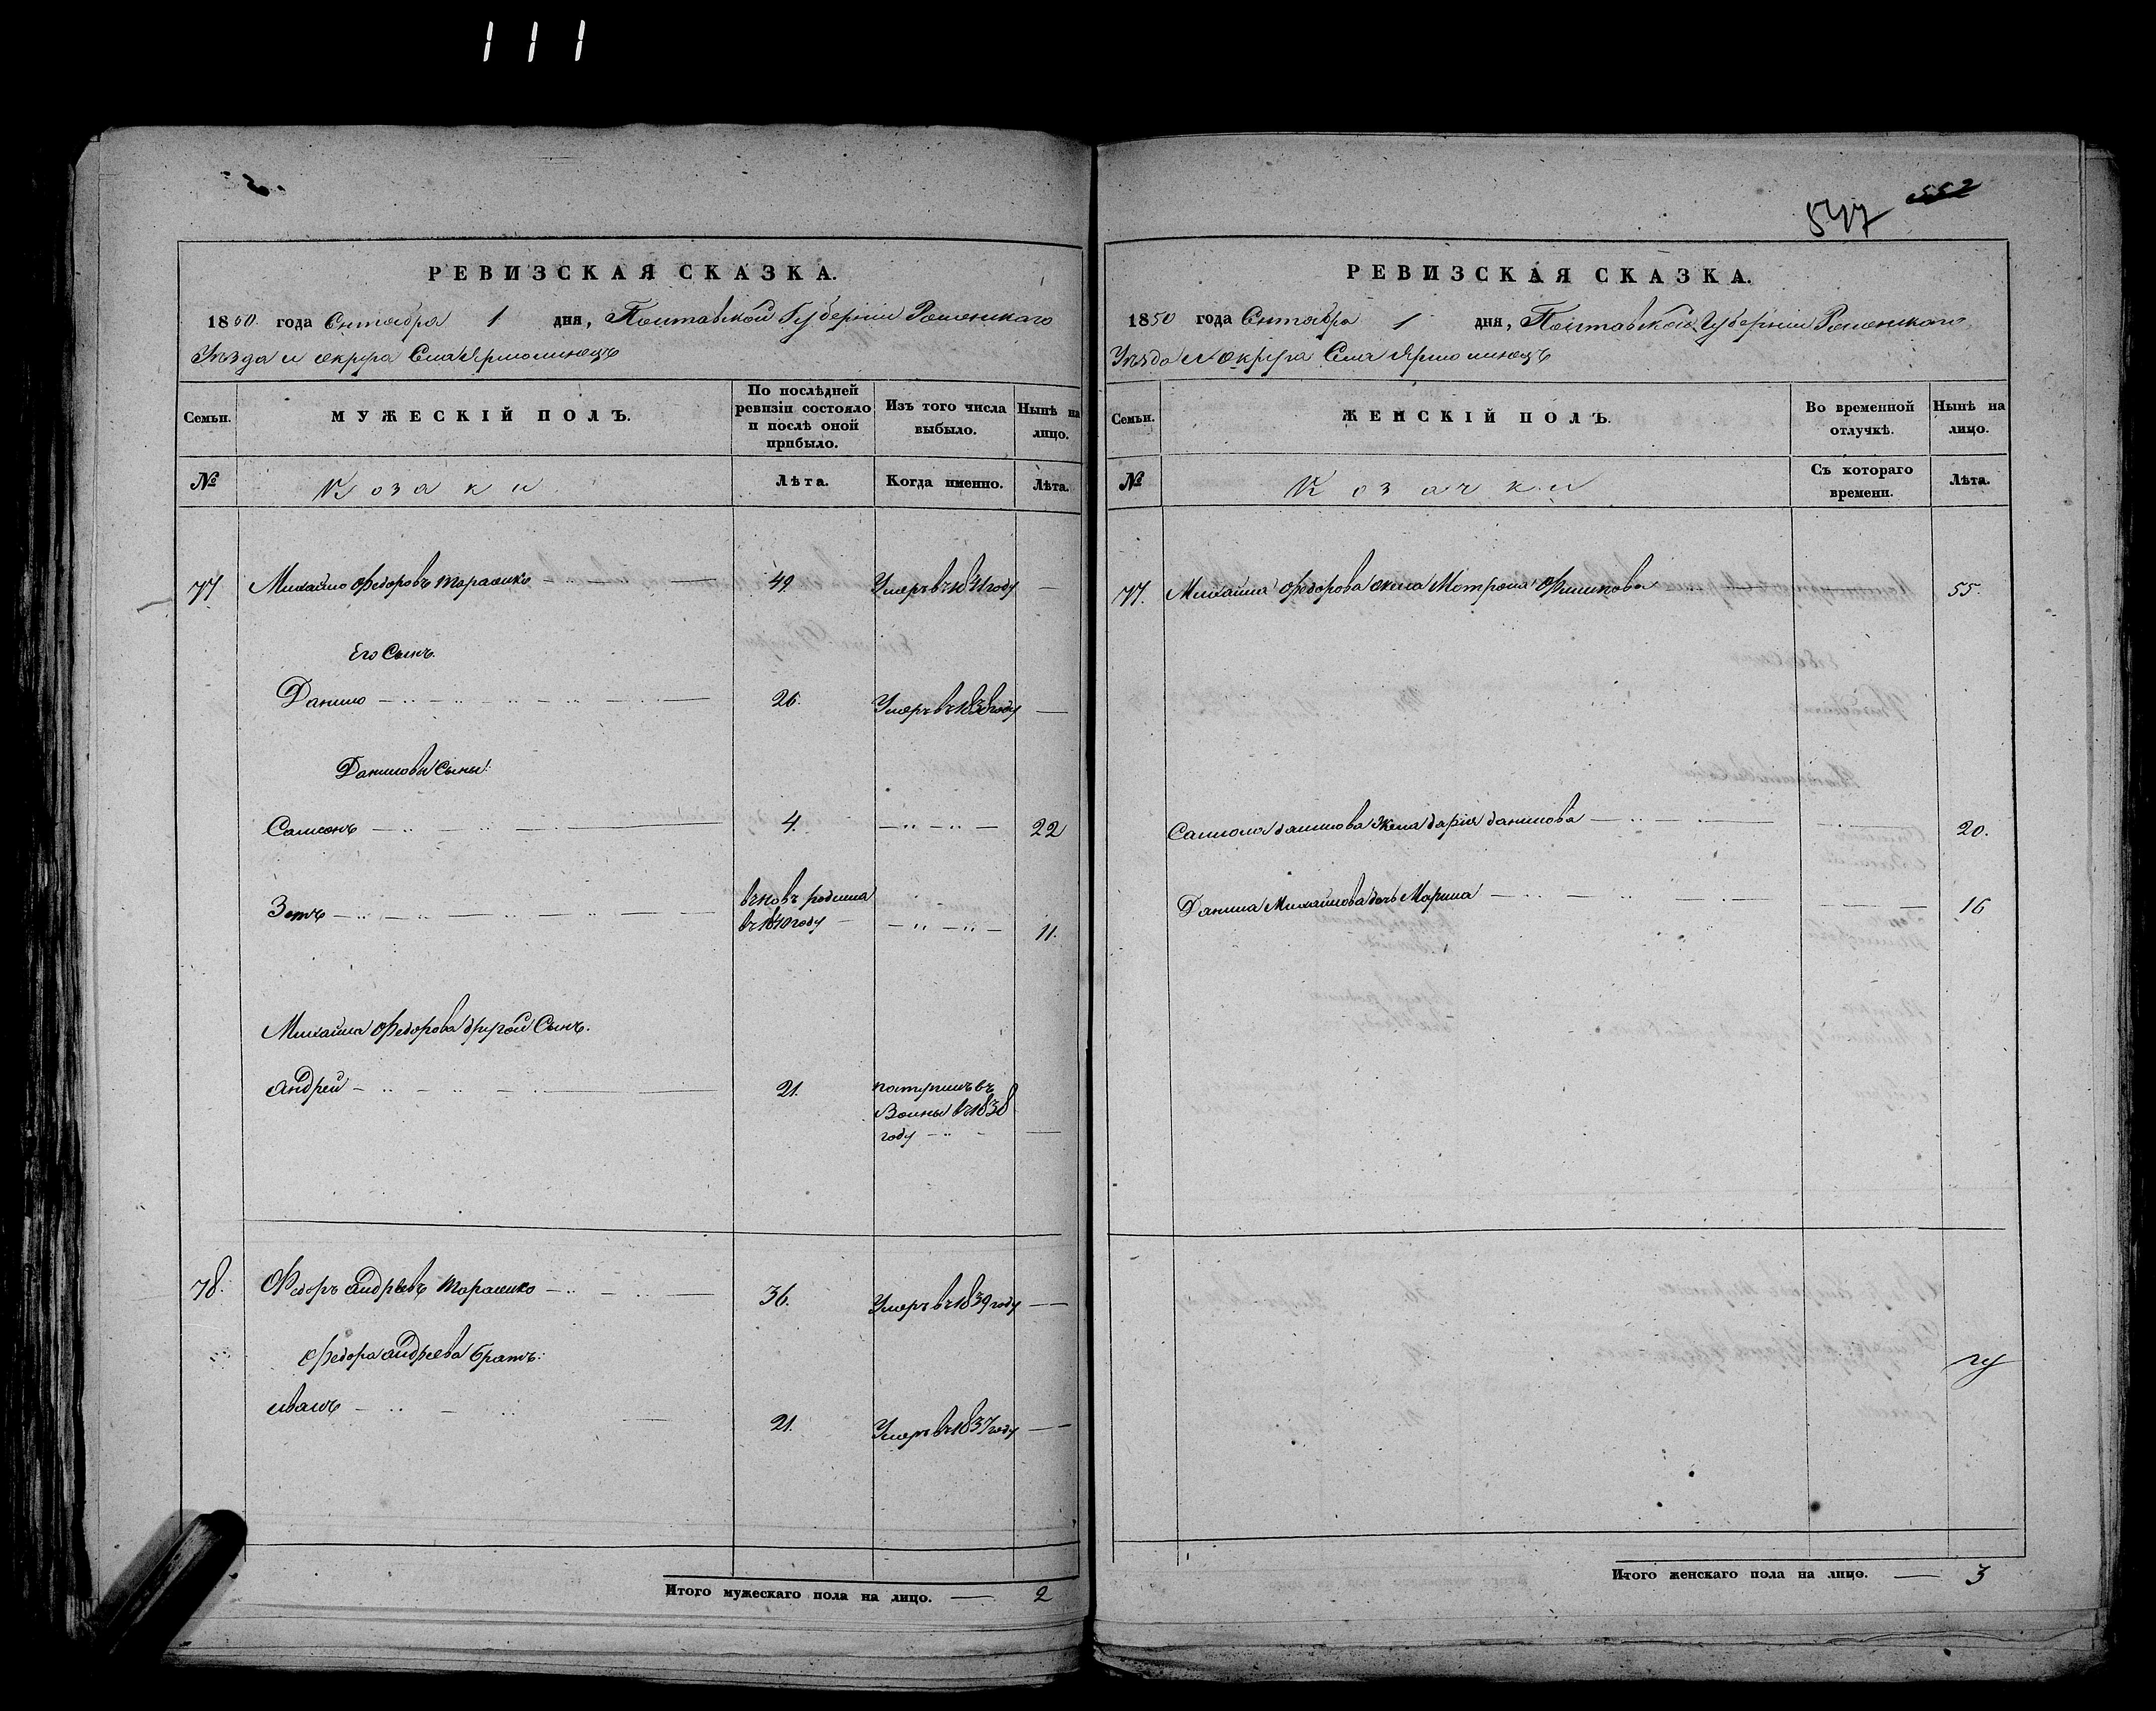 111
2.
РЕВИЗСКАЯ СКАЗКА.
1850. года Сентября 1 дня, Полтавской Губерніи Роменскаго
Уѣзда и округа Села Ярмолинецъ
Семьи.
МУЖЕСКІЙ ПОЛЪ.
По послѣдней
ревизіи состояло
и послѣ оной
прибыло.
Изъ того числа
выбыло.
Нынѣ на
лицо.
№
Козаки
Лѣта.
Когда именно.
Лѣта.
77 Михайло Федоровъ Тарасенко 49. Умеръ въ 1841 году
Его Сынъ.
Данило 26. Умеръ въ 1838 году
Даниловы Сыны:
Самсонъ 4. 22
Зотъ вновь родился
въ 1840 году 11.
Михайла Федорова другой Сынъ.
Андрей 21. поступилъ въ
Воины въ 1838
году
78. Федоръ Андреевъ Тарасенко 36. Умеръ въ 1839 году
Федора Андреева братъ:
Иванъ 21. Умеръ въ 1837 году
Итого мужескаго пола на лицо. 2
547 552
РЕВИЗСКАЯ СКАЗКА.
1850 года Сентября 1 дня, Полтавской Губерніи Роменскаго
Уѣзда и округа Села Ярмолинецъ
Семьи.
ЖЕНСКІЙ ПОЛЪ.
Во временной
отлучкѣ.
Нынѣ на
лицо.
№
Козачки
Съ котораго
времени.
Лѣта.
77. Михайла Федорова жена Мотрона 55.
Самсона Данилова жена Дарія Данилова 20.
Данила Михайлова дочь Марина 16
Итого женскаго пола на лицо. 3